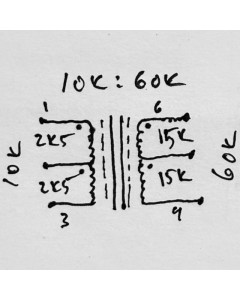 10K : 60K
1 6
2K5 15K
10K 60K
2K5 15K
3 9